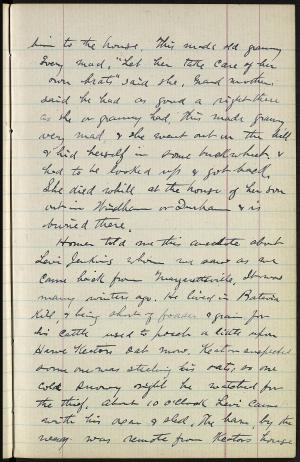 him to the house. This made old granny
very mad, "Let her take care of her
own brats" said she. Grand mother
said he had as good a right there
as she or granny had, this made granny
very mad, & she went out on the hill
& hid herself in some buckwheat &
had to be looked up & got back.
She died while at the house of her son
out in Windham or Durham & is
buried there.
Homer told me this anecdote about
Levi Jenkins whom we saw as we
came back from Margaretteville. It was
many winters ago. He lived in Batavia
Kill & being short of fodder & grain for
his cattle used to poach a little upon
Keator's oat mow. Keator suspected
some one was stealing his oats, so one
cold snowy night he watched for
the thief. About 10 o'clock Levi came
with his oxen & sled. The barn, by the
way was remote from Keators house